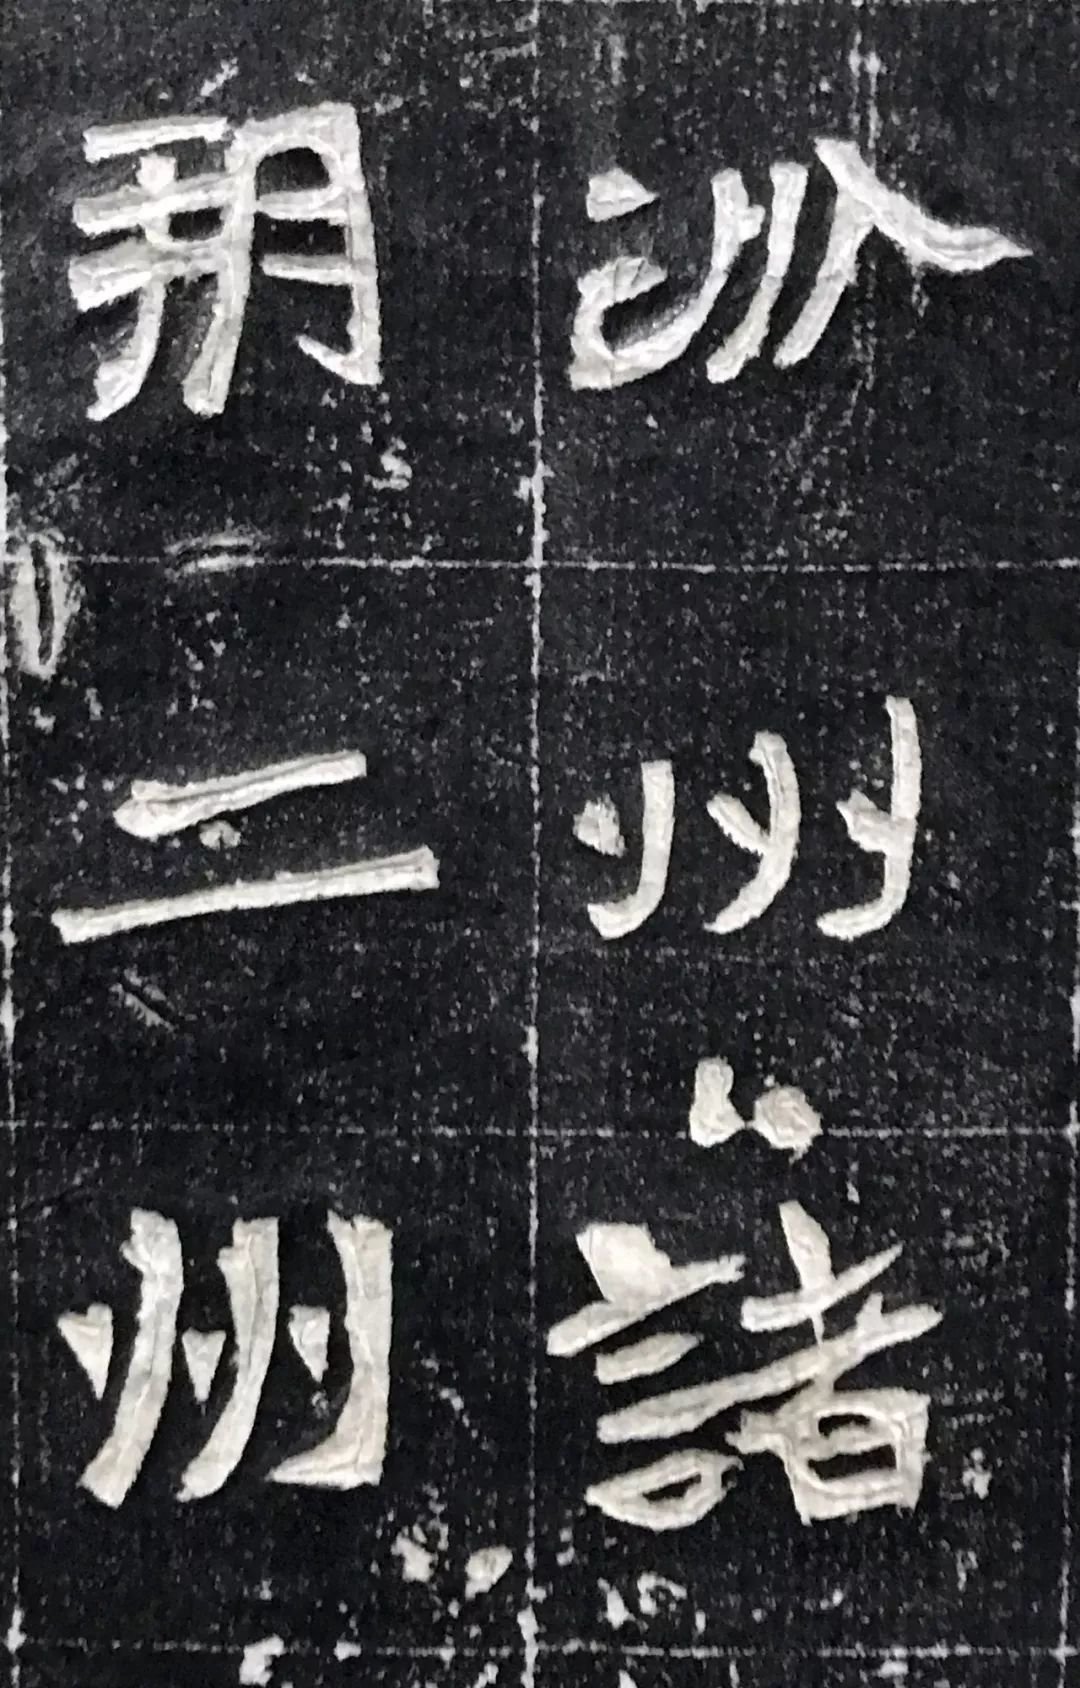 州諸
朔二州